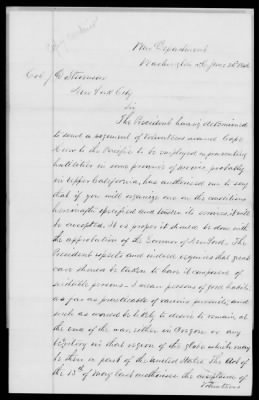 War Department
Washington City June 26th 1846
Col J. D. Stevenson
New York City
Sir
The President having determined
to send a regiment of volunteers around Cape
Horn to the Pacific to be employed in prosecuting
hostilities in some province of Mexico probably
in Upper California, has authorized me to say
that if you will organize one on the conditions
hereinafter specified and tender its services it will
be accepted. It is proper it should be done with
the approbation of the Governor of New York. The
President expects and indeed requires that great
care should be taken to have it composed of
suitable persons - I mean persons of good habits
as far as practicable of various pursuits, and
such as would be likely to desire to remain at
the end of the war, either in Oregon or any
territory in that region of the globe which may
be then a part of the United States. The act of
the 13th of May last authorizes the acceptance of
Volunteers